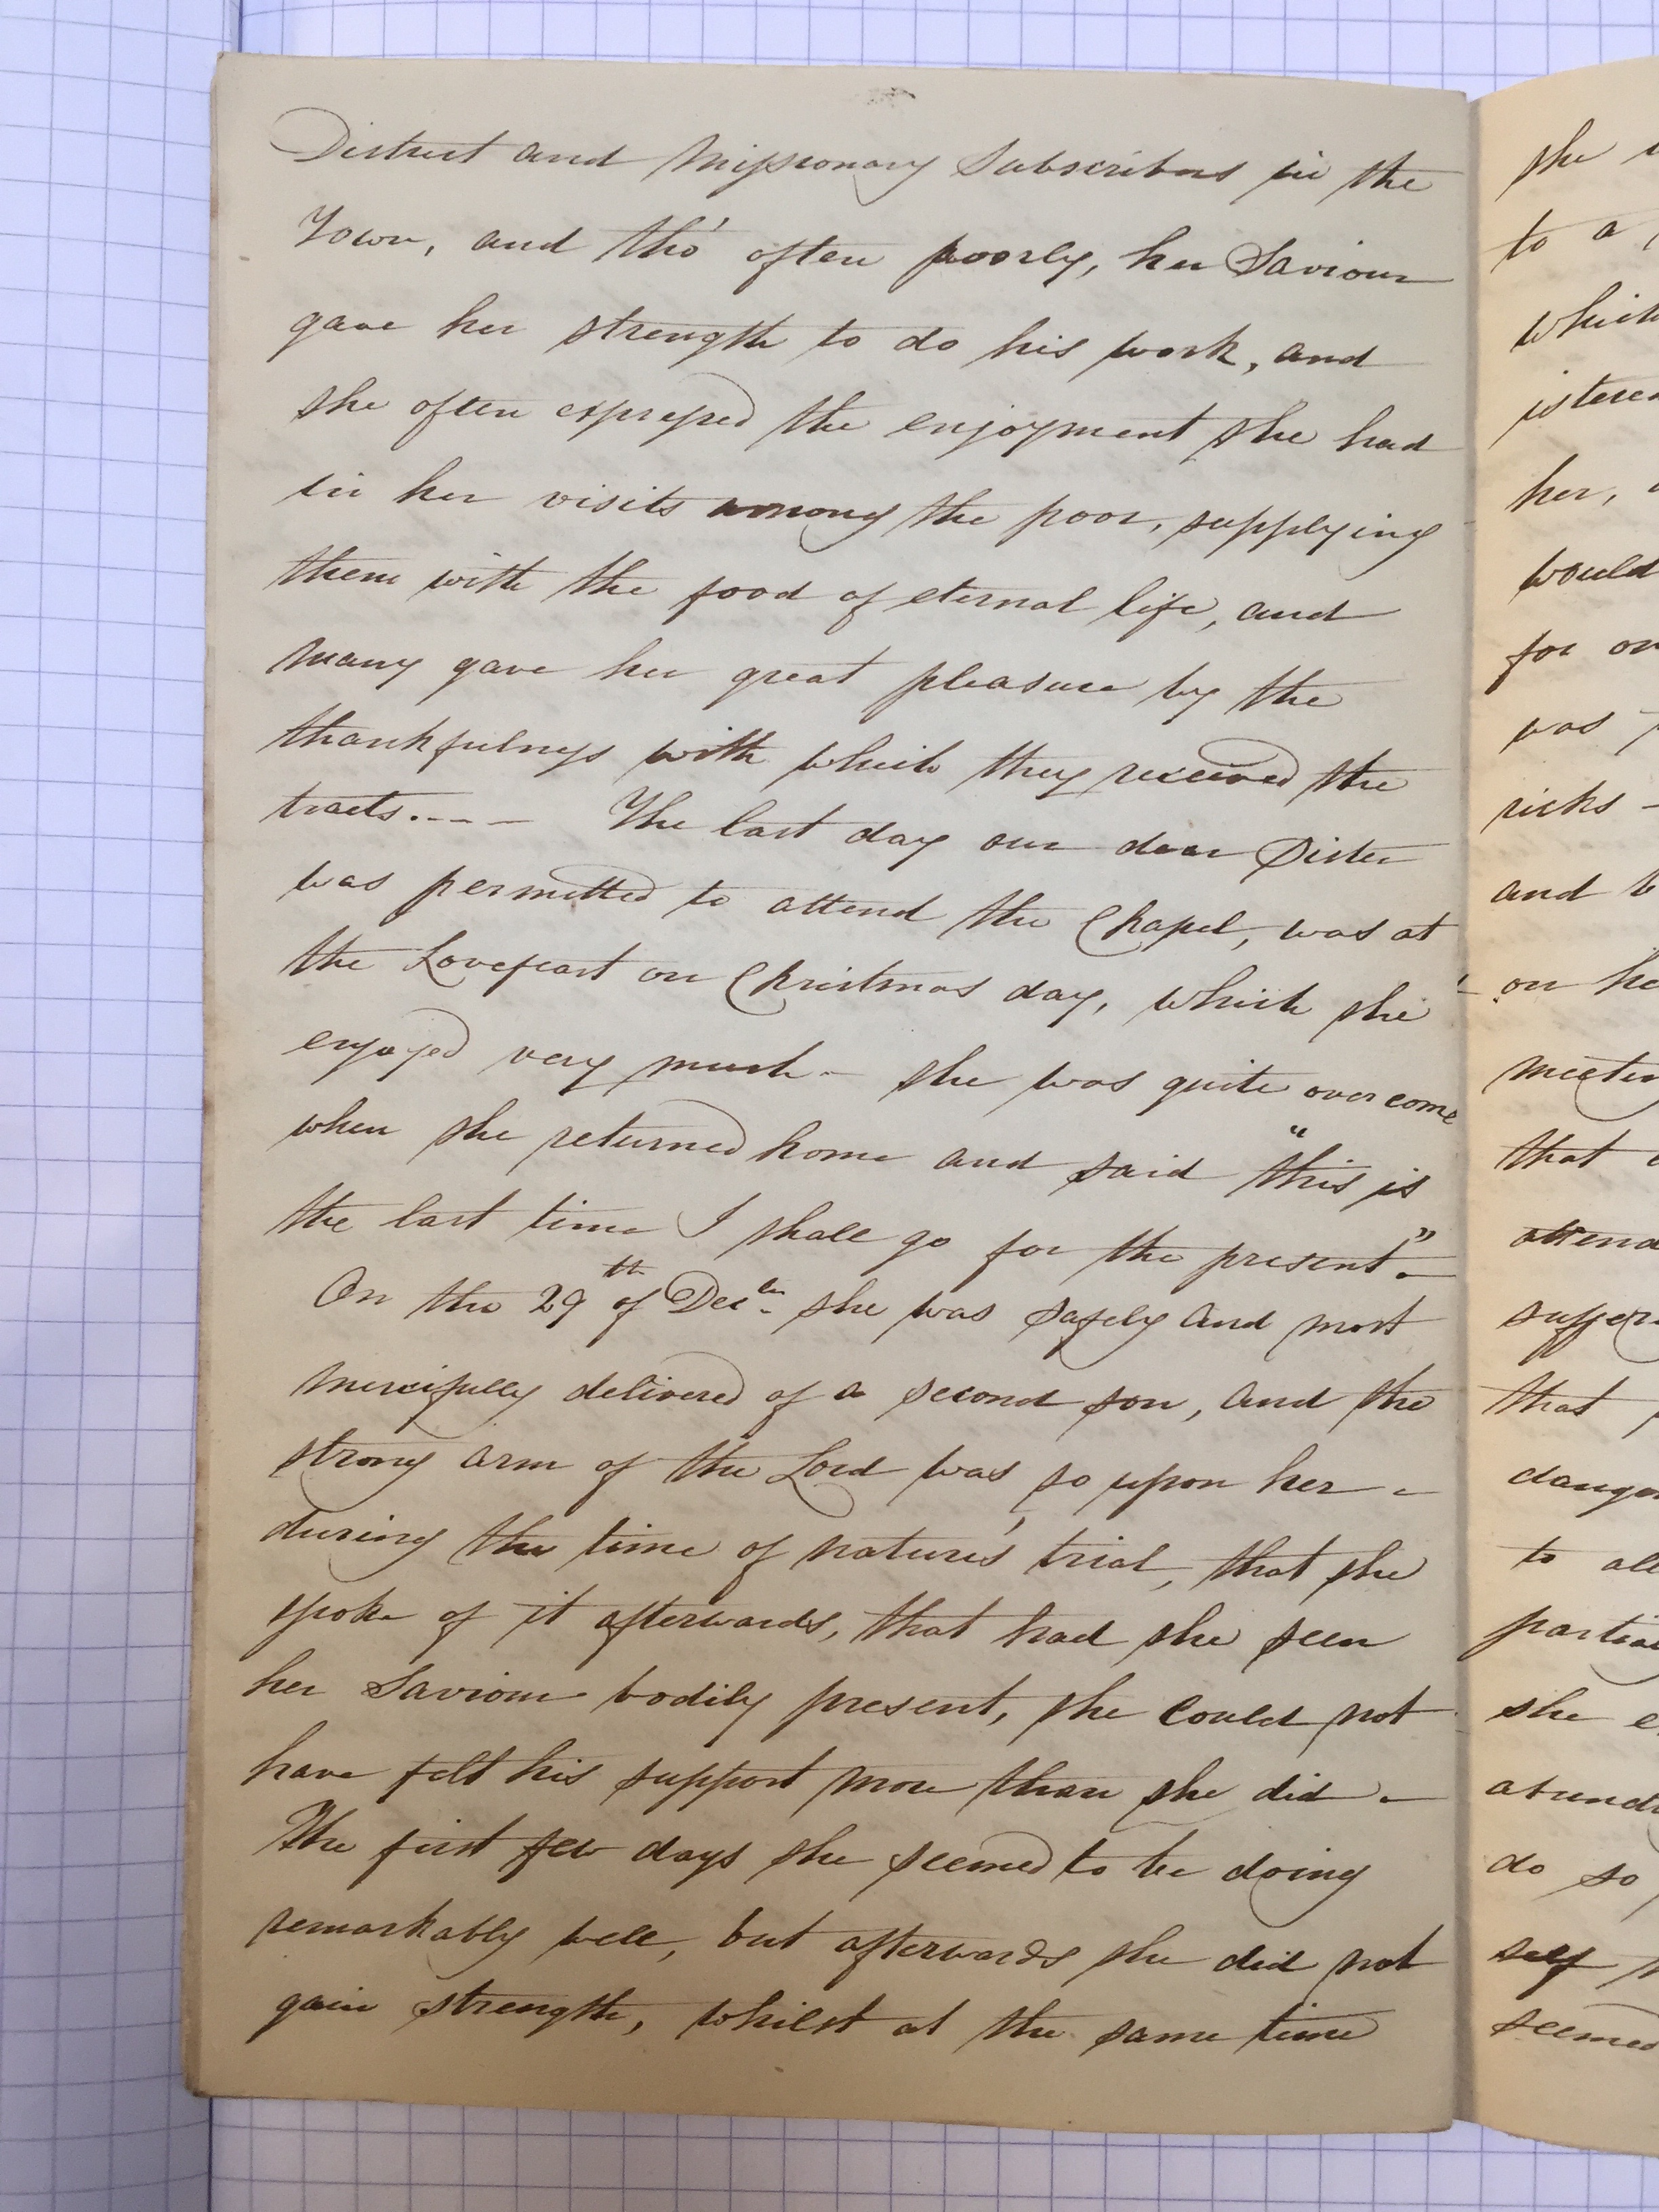 District and Missionary Subscribers in the
Town, and tho' often poorly, her Saviour
gave her strength to do his work, and
she often expressed the enjoyment she had
in her visits among the poor, supplying
them with the food of eternal life, and
many gave her great pleasure by the
thankfulness with which they received the
tracts.--- The last day our dear Sister
was permitted to attend the Chapel, was at
the Lovefeast on Christmas day, which she
enjoyed very much - she was quite overcome
when she returned home and said "this is
the last time I shall go for the present".-
On the 29th of Decbr. she was safely and most
mercifully delivered of a second son, and the
strong arm of the Lord was so upon her -
during the time of nature's trial, that she
spoke of it afterwards, that had she seen
her Saviour bodily present, she could not
have felt his support more than she did -
The first few days she seemed to be doing
remarkably well, but afterwards she did not
gain strength, whilst at the same time
she
to a
which
her,
would
for
was
ricks -
and
on
that
that
to
she
do so
self
seemed